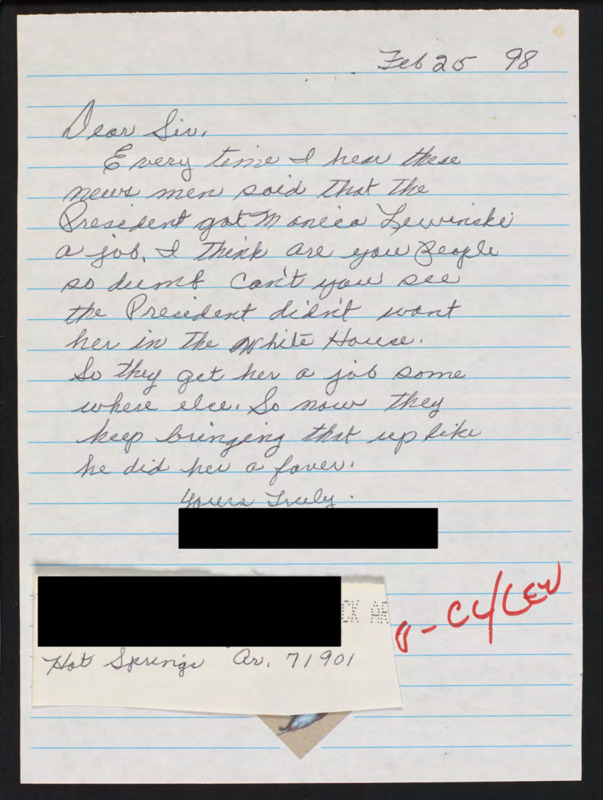 Feb 25 98
Dear Sir,
Every time I hear these
news men said that the
President got Monica Lewinski
a job, I think are you people
so dumb can't you see
the President didn't want
her in the White House.
So they get her a job some
where else. So now they
keep bringing that up like
he did her a faver.
Yours Truly.
CK AR
Hot Springs Ar. 71901
- CL/LEW